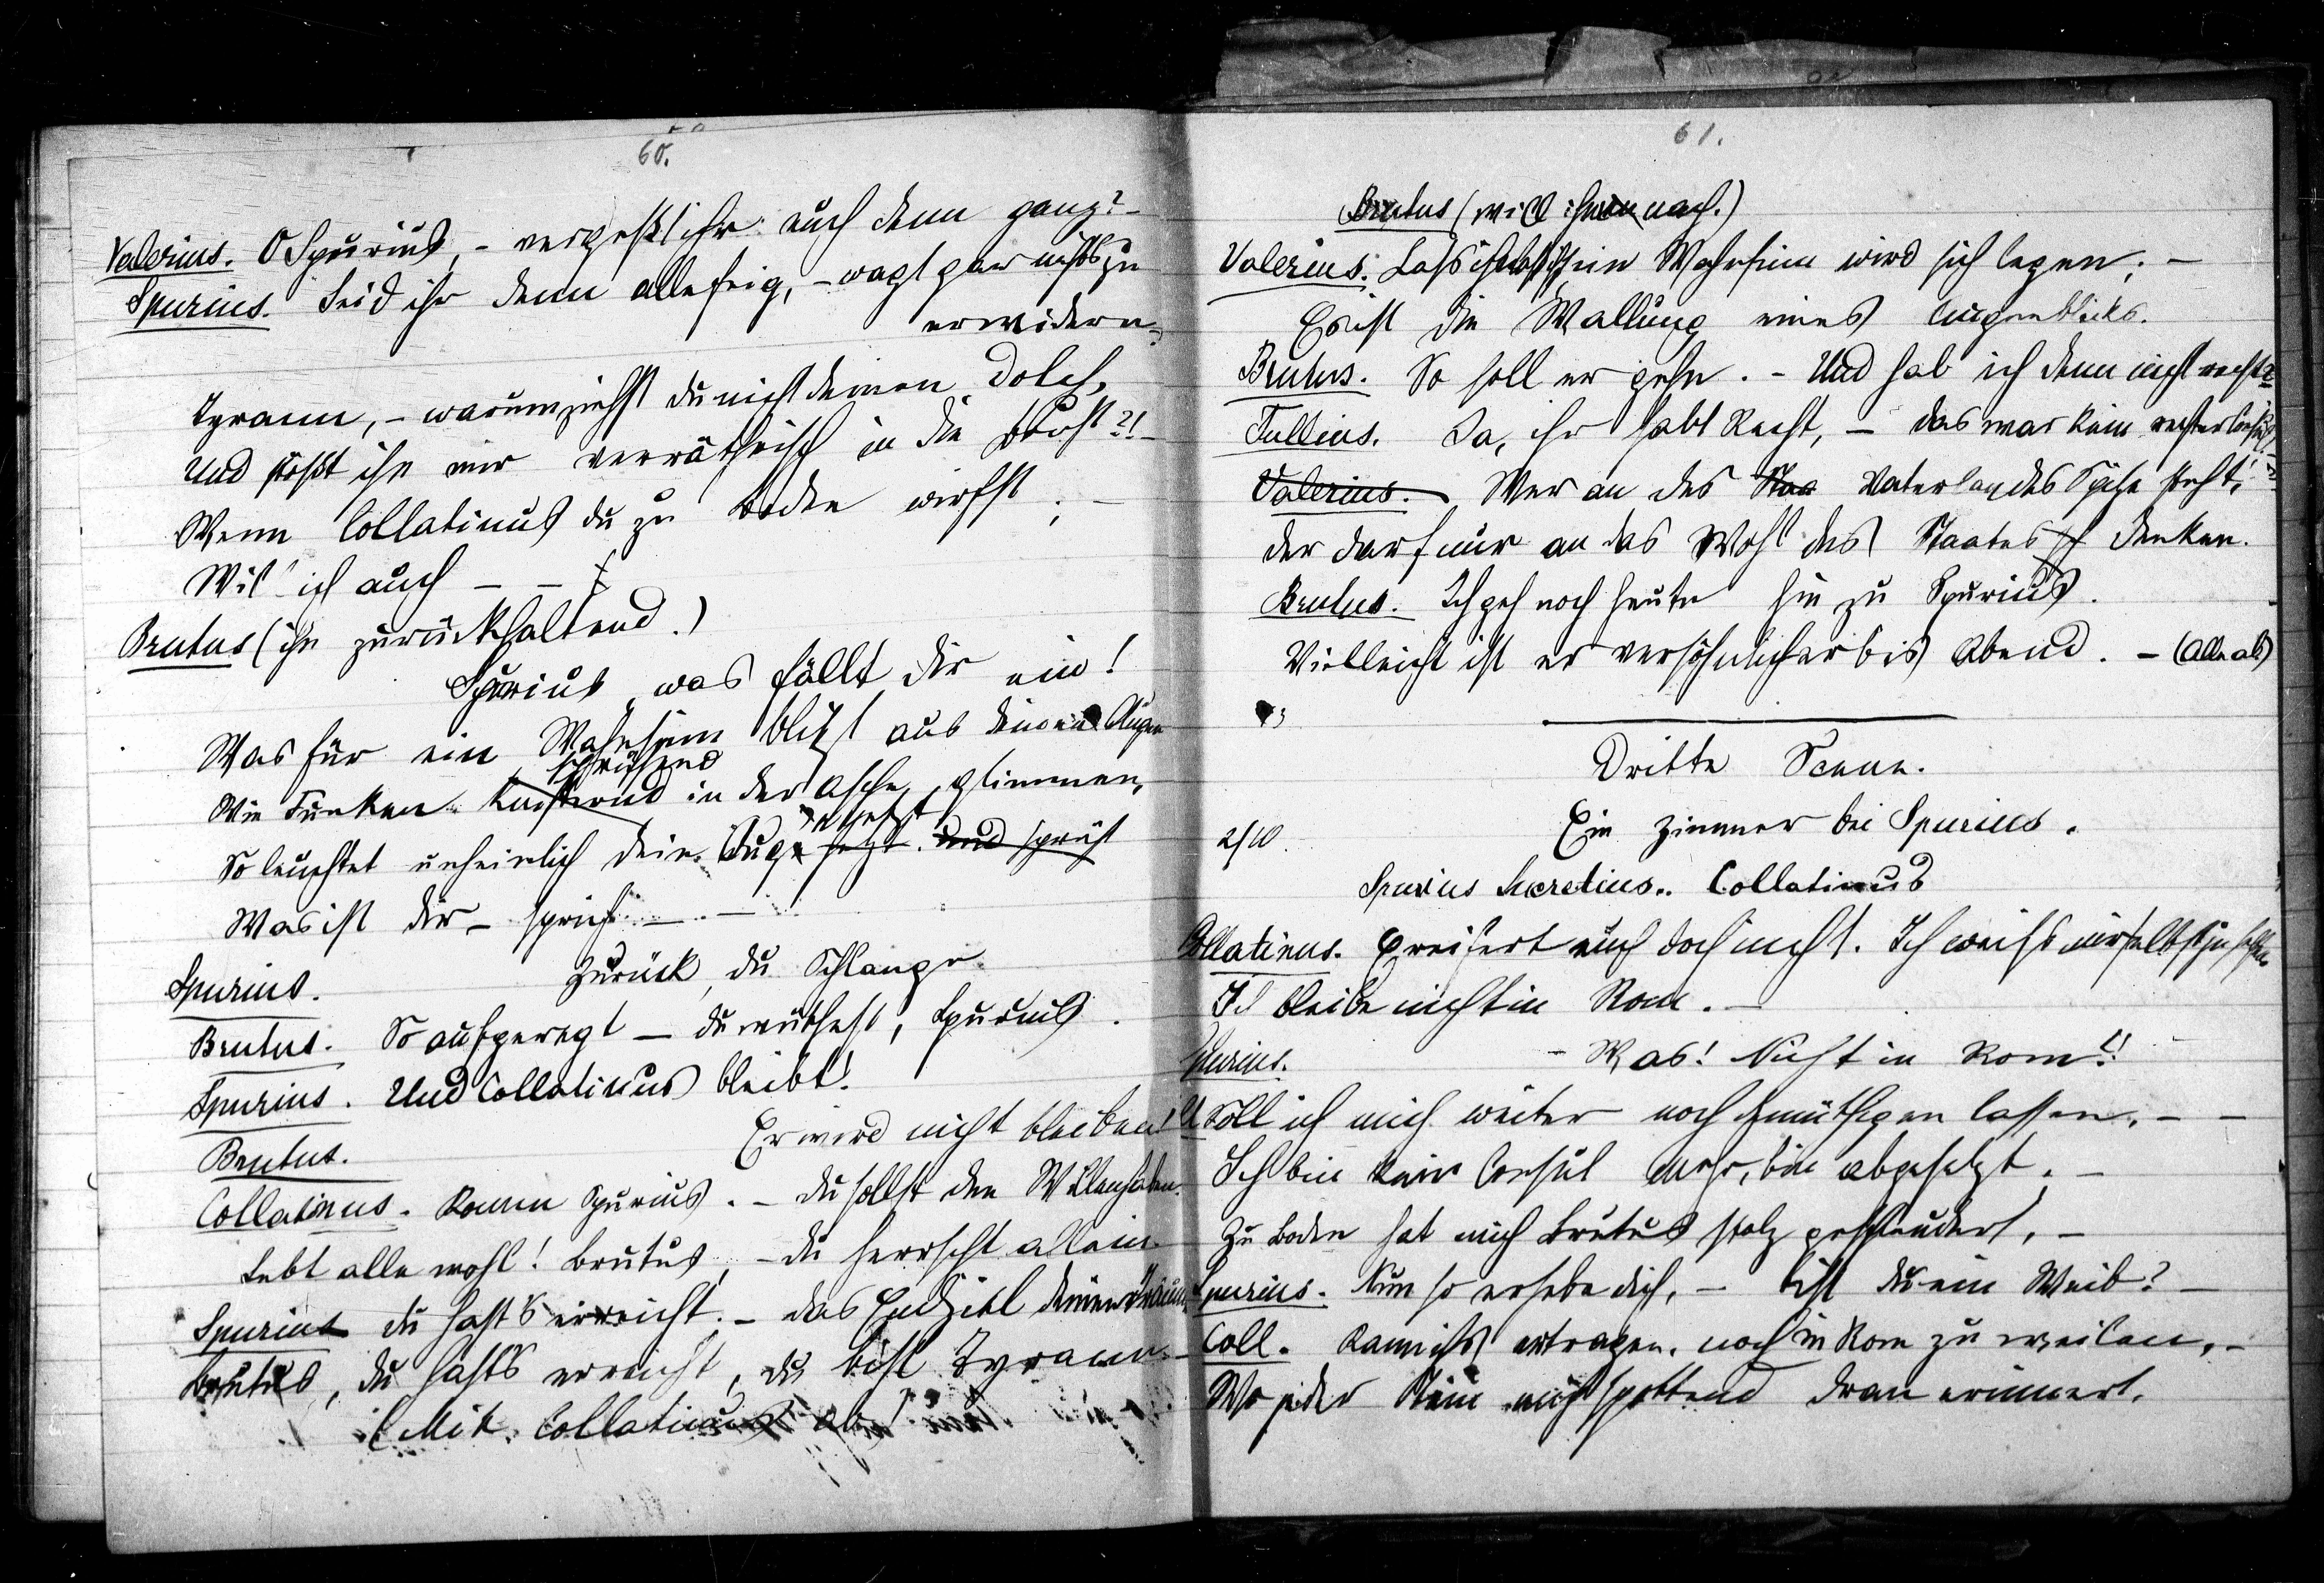 60.
Valerius. O Spurius, - vergeßt ihr euch denn ganz? -
Spurius. Seid ihr denn alle feig, - wagt gar nichts zu
erwidern,
Tyrann, - warum ziehst du nicht deinen Dolch,
Und stößt ihn mir verräthrisch in die Brust?! -
Wenn Collatinus du zu Boden wirfst, -
Will ich auch - -
Brutus (ihn zurückhaltend.)
Spurius, was fällt dir ein!
Was für ein Wahnsinn blitzt aus deinen Augen
sprühend
Wie Funken knisternd in der Asche glimmen,
jetzt
So leuchtet unheimlich dein Auge jetzt. und sprüht
Was ist dir - sprich. -
Spurius. Zurück, du Schlange
Brutus. So aufgeregt - du wüthest, Spurius.
Spurius. Und Collatinus bleibt!
Brutus. Er wird nicht bleiben!
Collatinus. Komm Spurius. - du sollst den Willen haben.
Lebt alle wohl! Brutus, - du herrscht allein.
Spurius du hast's erreicht. - das Endziel deiner Träume
Brutus, du hast's erreicht, du bist Tyrann. -
(Mit Collatinus ab)
61.
Brutus (will ihnen nach.)
Valerius. Lass ihn, sein Wahnsinn wird sich legen; -
Es ist die Wallung eines Augenblicks.
Brutus. So soll er gehn. - Und hab ich denn nicht recht?
Tullius. Ja, ihr habt Recht, - das war kein
Valerius. Wer an des Staa Vaterlandes Spitze steht,
der darf nur an das Wohl des Staates denken.
Brutus. Ich geh noch heute hin zu Spurius.
Vielleicht ist er versöhnlicher bis Abend. - (Alle ab)
Dritte Scene.
Ein Zimmer bei Spurius.
2/10.
Spurius Lucretius.. Collatinus
Collatinus. Ereifert euch doch nicht. Ich weiß mir selbst zu helfen
Ich bleibe nicht in Rom. -
Spurius. - Was! Nicht in Rom!!
Soll ich mich weiter noch demüthigen lassen, - -
Ich bin kein Consul mehr, bin abgesetzt. -
Zu Boden hat mich Brutus stolz geschleudert, -
Spurius. Nun so erhebe dich, - bist du ein Weib? -
Coll. Kann ichs ertragen, noch in Rom zu weilen, -
Wo jeder Stein mich spottend dran erinnert,